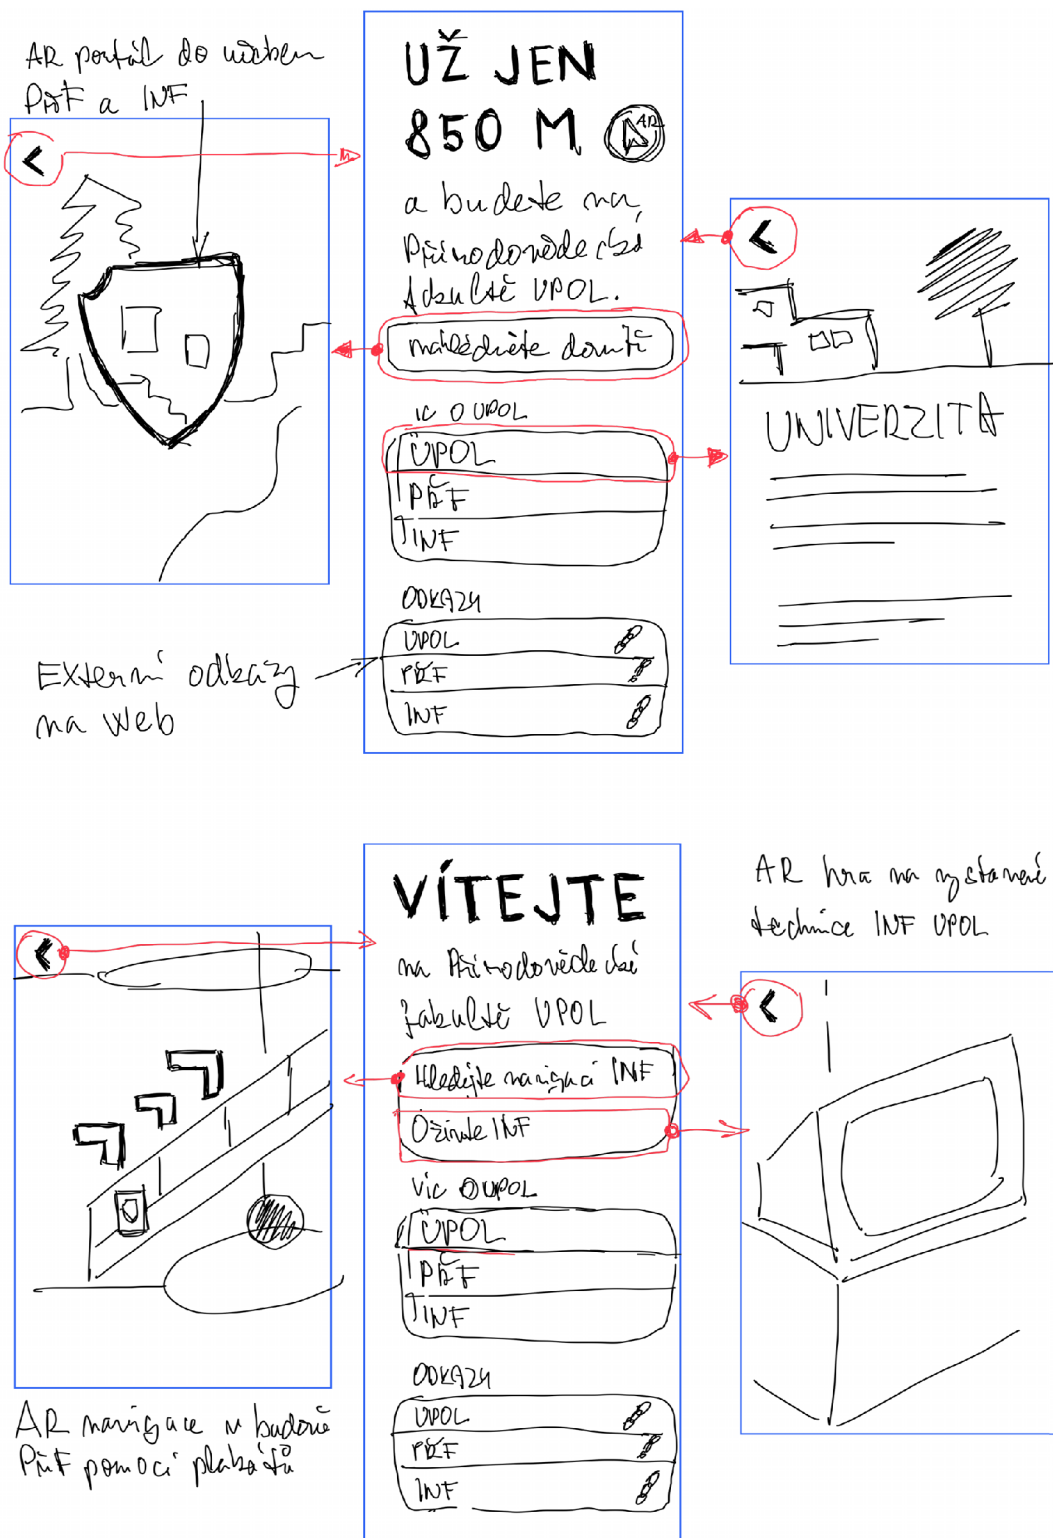 AR portál do učeben
PřF a INF
UŽ JEN
850 M
AR
a budete na
Přírodovědecké
fakultě UPOL.
nahlédněte dovnitř
íc O UPOL
UPOL
PŘF
INF
ODKAZY
UPOL
PŘF
INF
Externí odkazy
na web
UNIVERZITA
VÍTEJTE
na Přírodovědecké
fakultě UPOL
Hledejte navigaci INF
Oživte INF
Víc O UPOL
UPOL
PŘF
INF
ODKAZY
UPOL
PŘF
INF
AR navigace v budově
PřF pomocí plakátů
AR hra na vystavené
technice INF UPOL